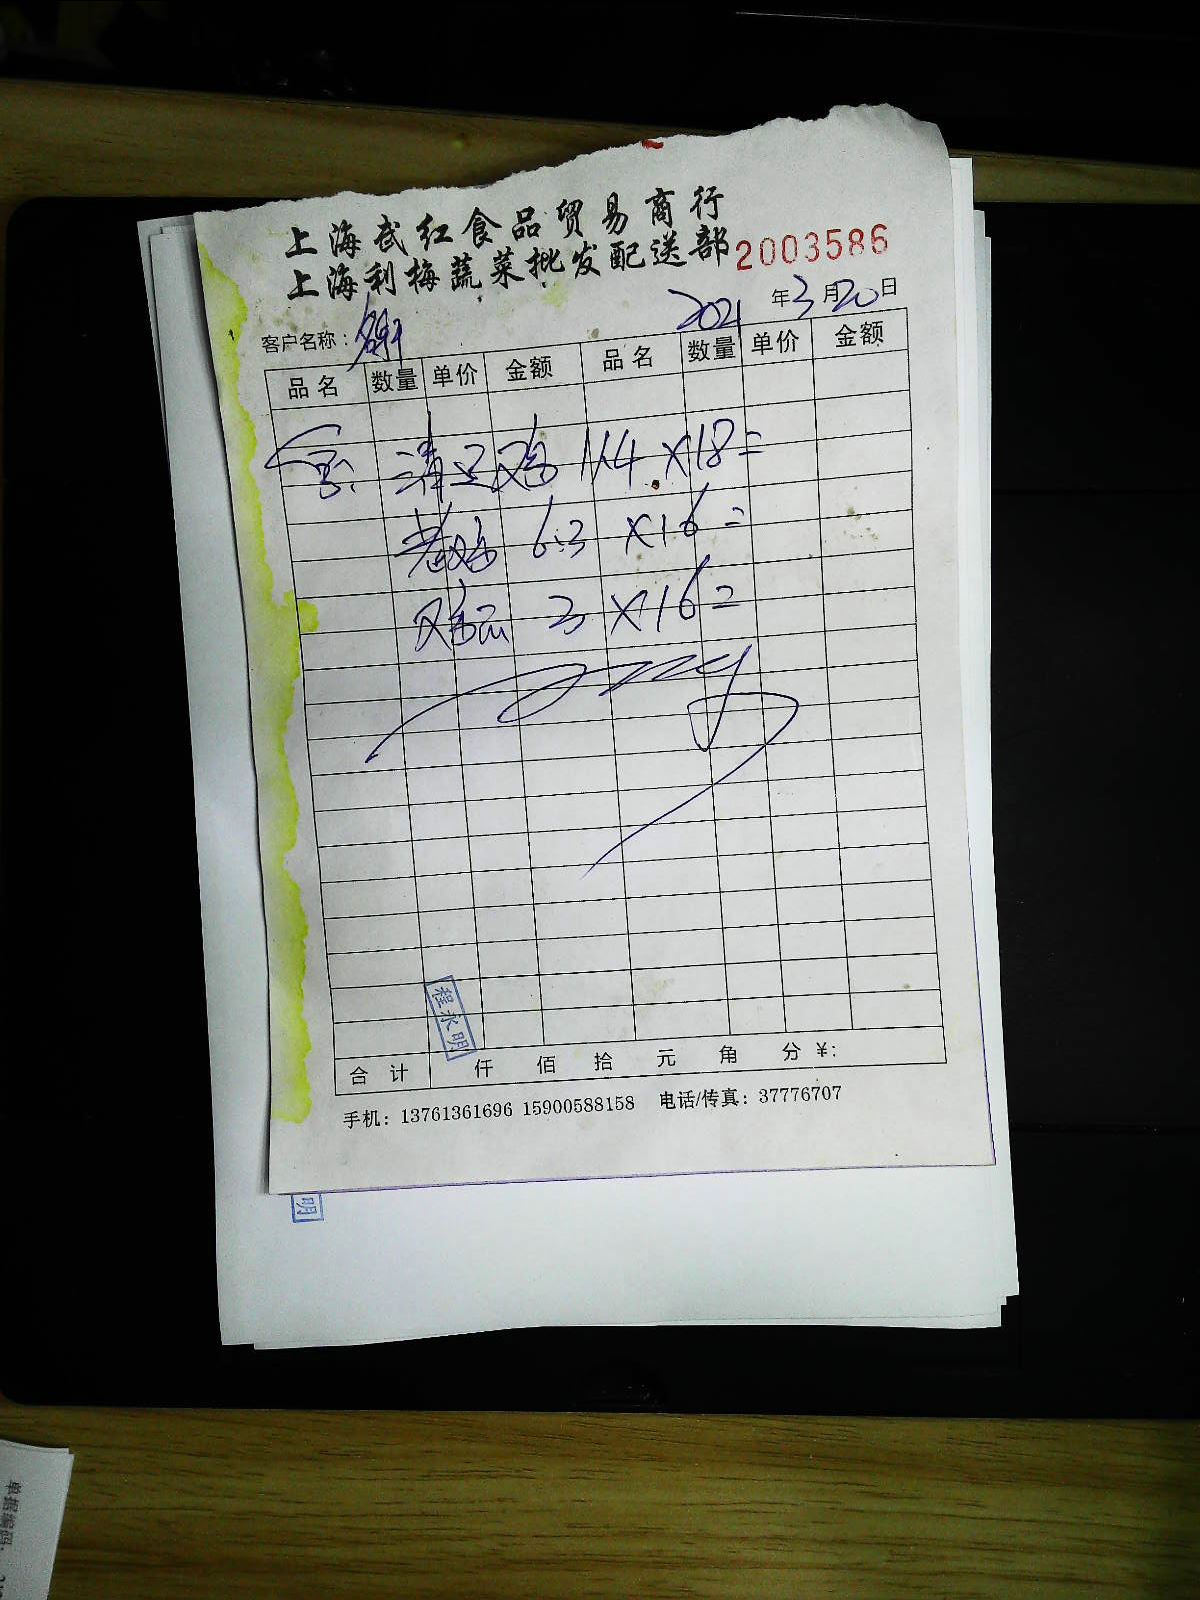 上海武红食品贸易商行
上海利梅蔬菜批发配送部 2003586
2021年3月20日
客户名称:谢
品名 数量 单价 金额 品名 数量 单价 金额
清远鸡 11.4 ×18=
老鸡 6.3 ×16=
鸡 3 ×16=
程永明
合计 仟 佰 拾 元 角 分 ¥:
手机: 13761361696 15900588158 电话/传真: 37776707
明
单据编码: